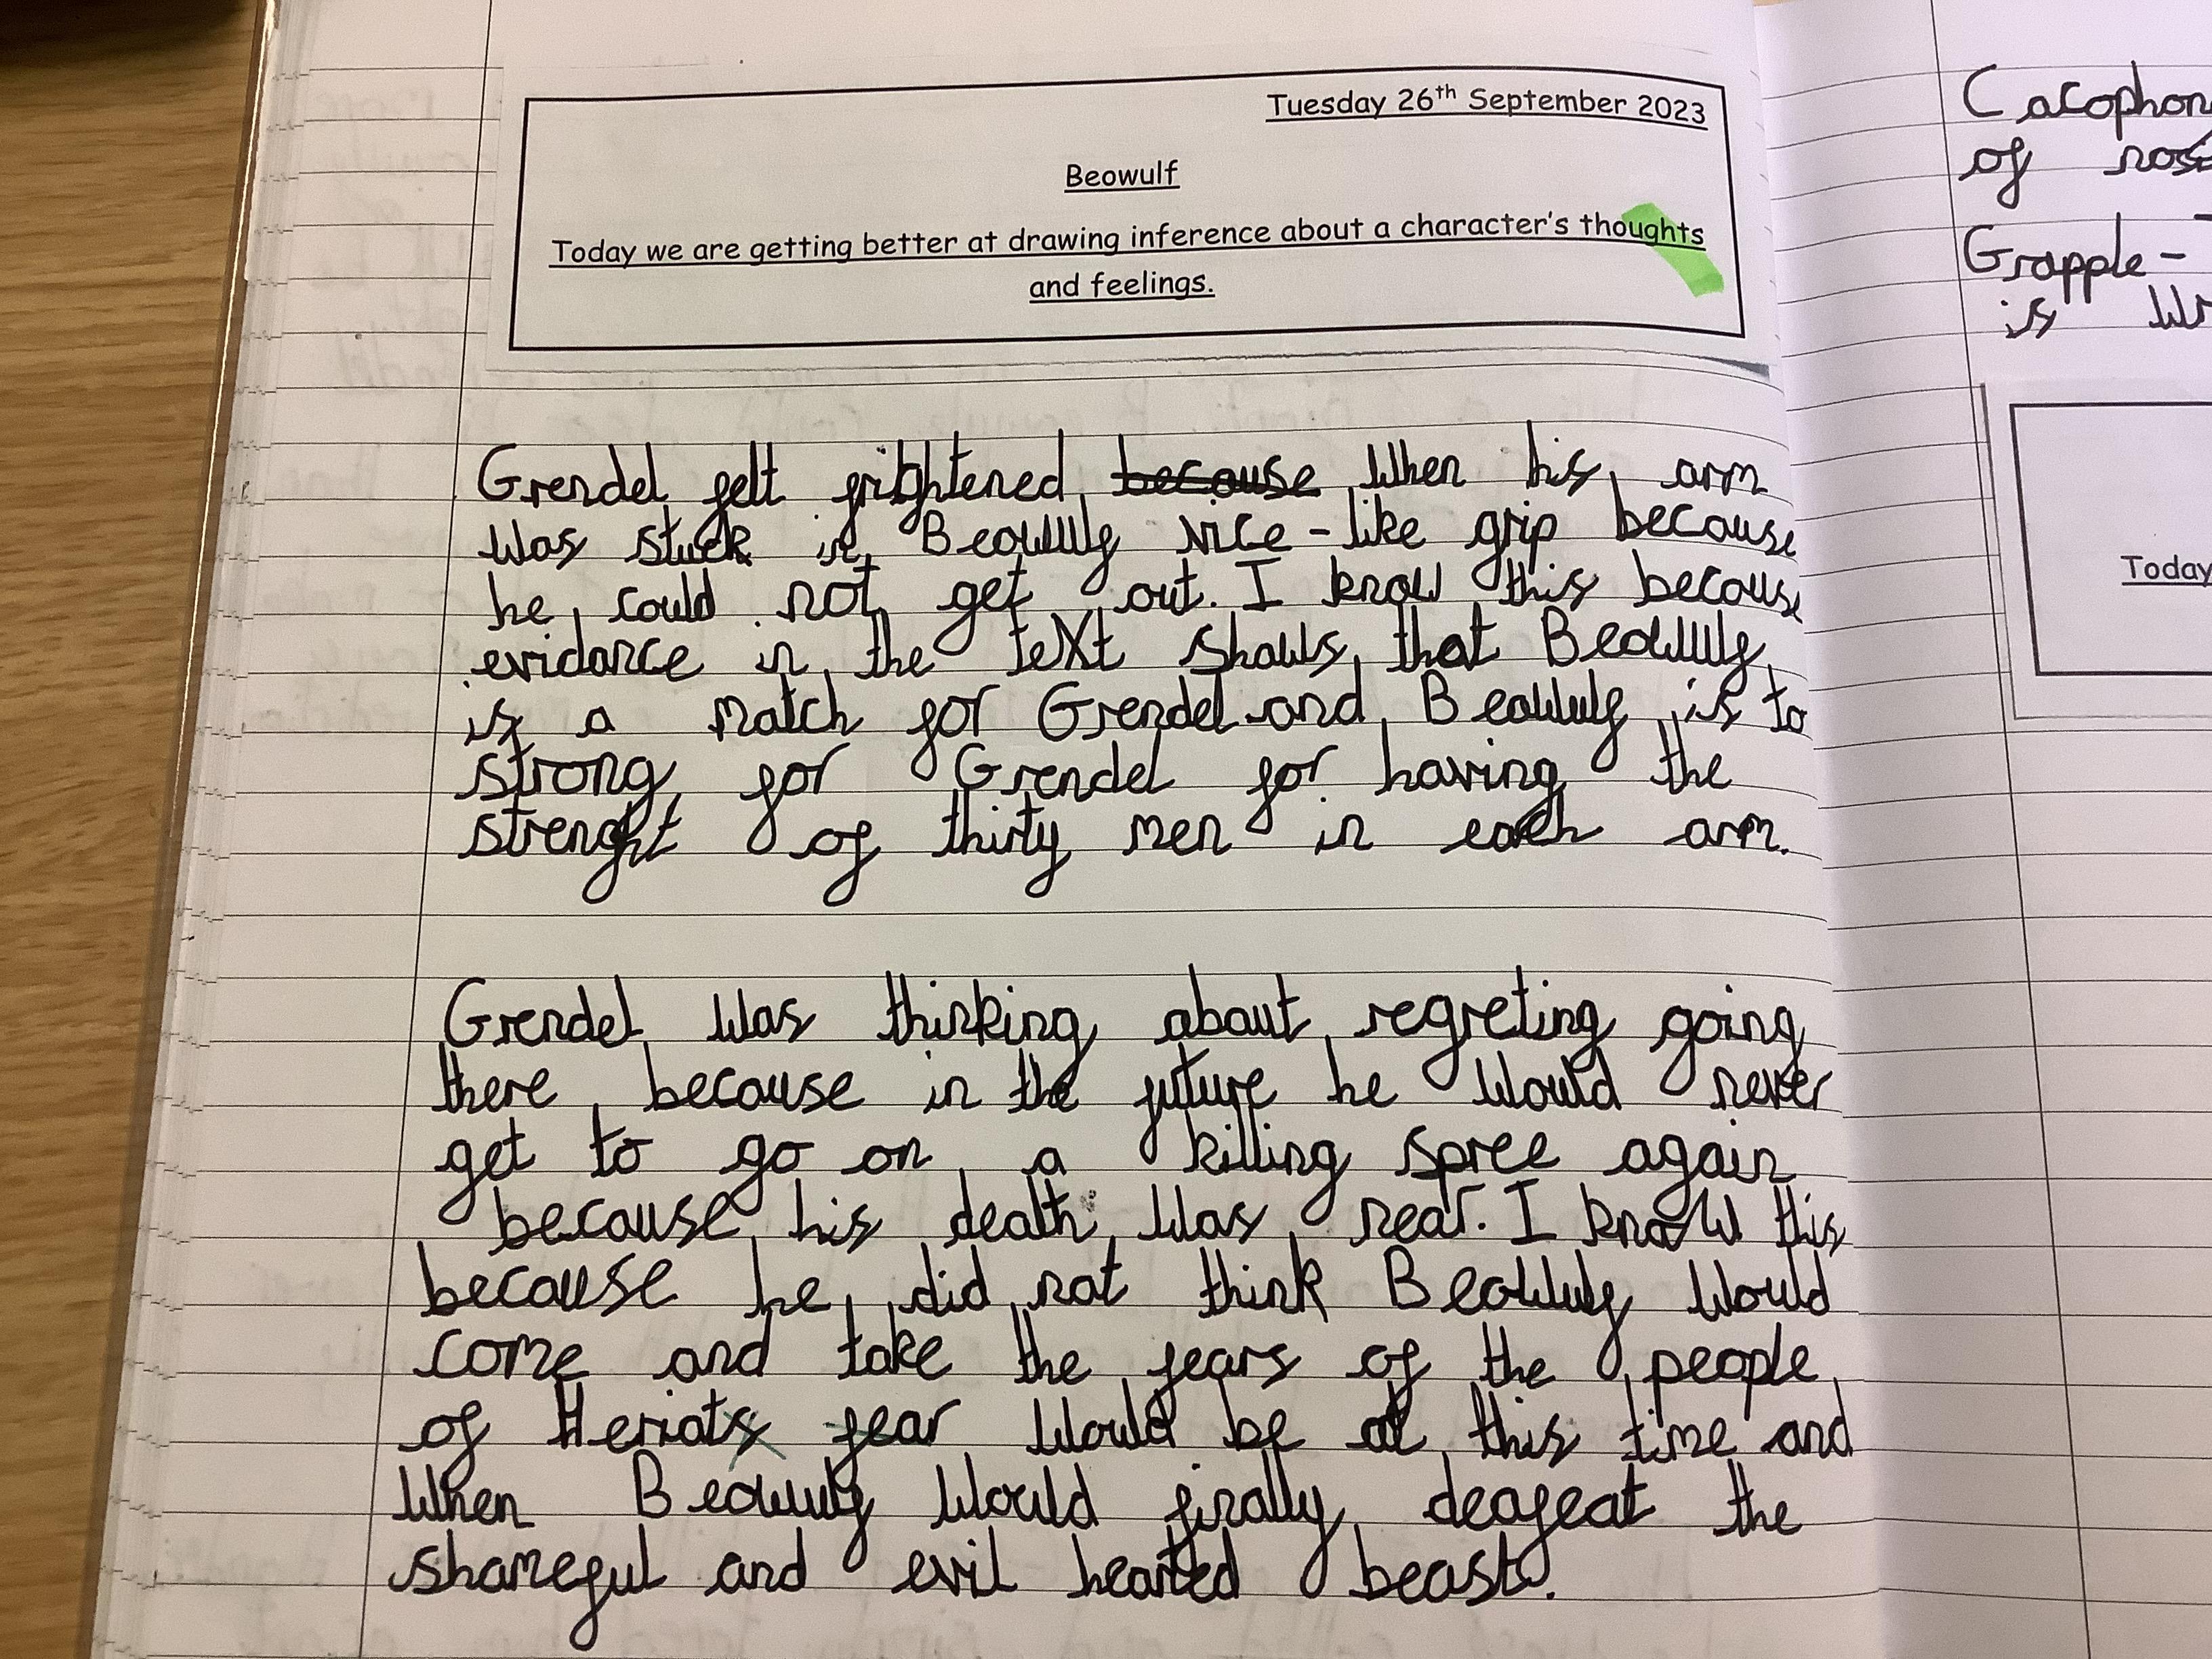 Tuesday 26th September 2023
Beowulf
Today we are getting better at drawing inference about a character's thoughts
and feelings.
Grendel felt frightened because when his arm
was stuck in Beowulf vice-like grip because
he could not get out. I know this because
evidance in the text shows that Beowulf
is a match for Grendel and Beowulf is to
strong for Grendel for having the
strenght of thirty men in each arm.
Grendel was thinking about regreting going
there because in the future he would never
get to go on a killing spree again
because his death was near. I know this
because he did not think Beowulf would
come and take the fears of the people
of fear would be at this time and
when Beowulf would finally deafeat the
shameful and evil hearted beast.
Cacophon
of
Grapple-
is
Today